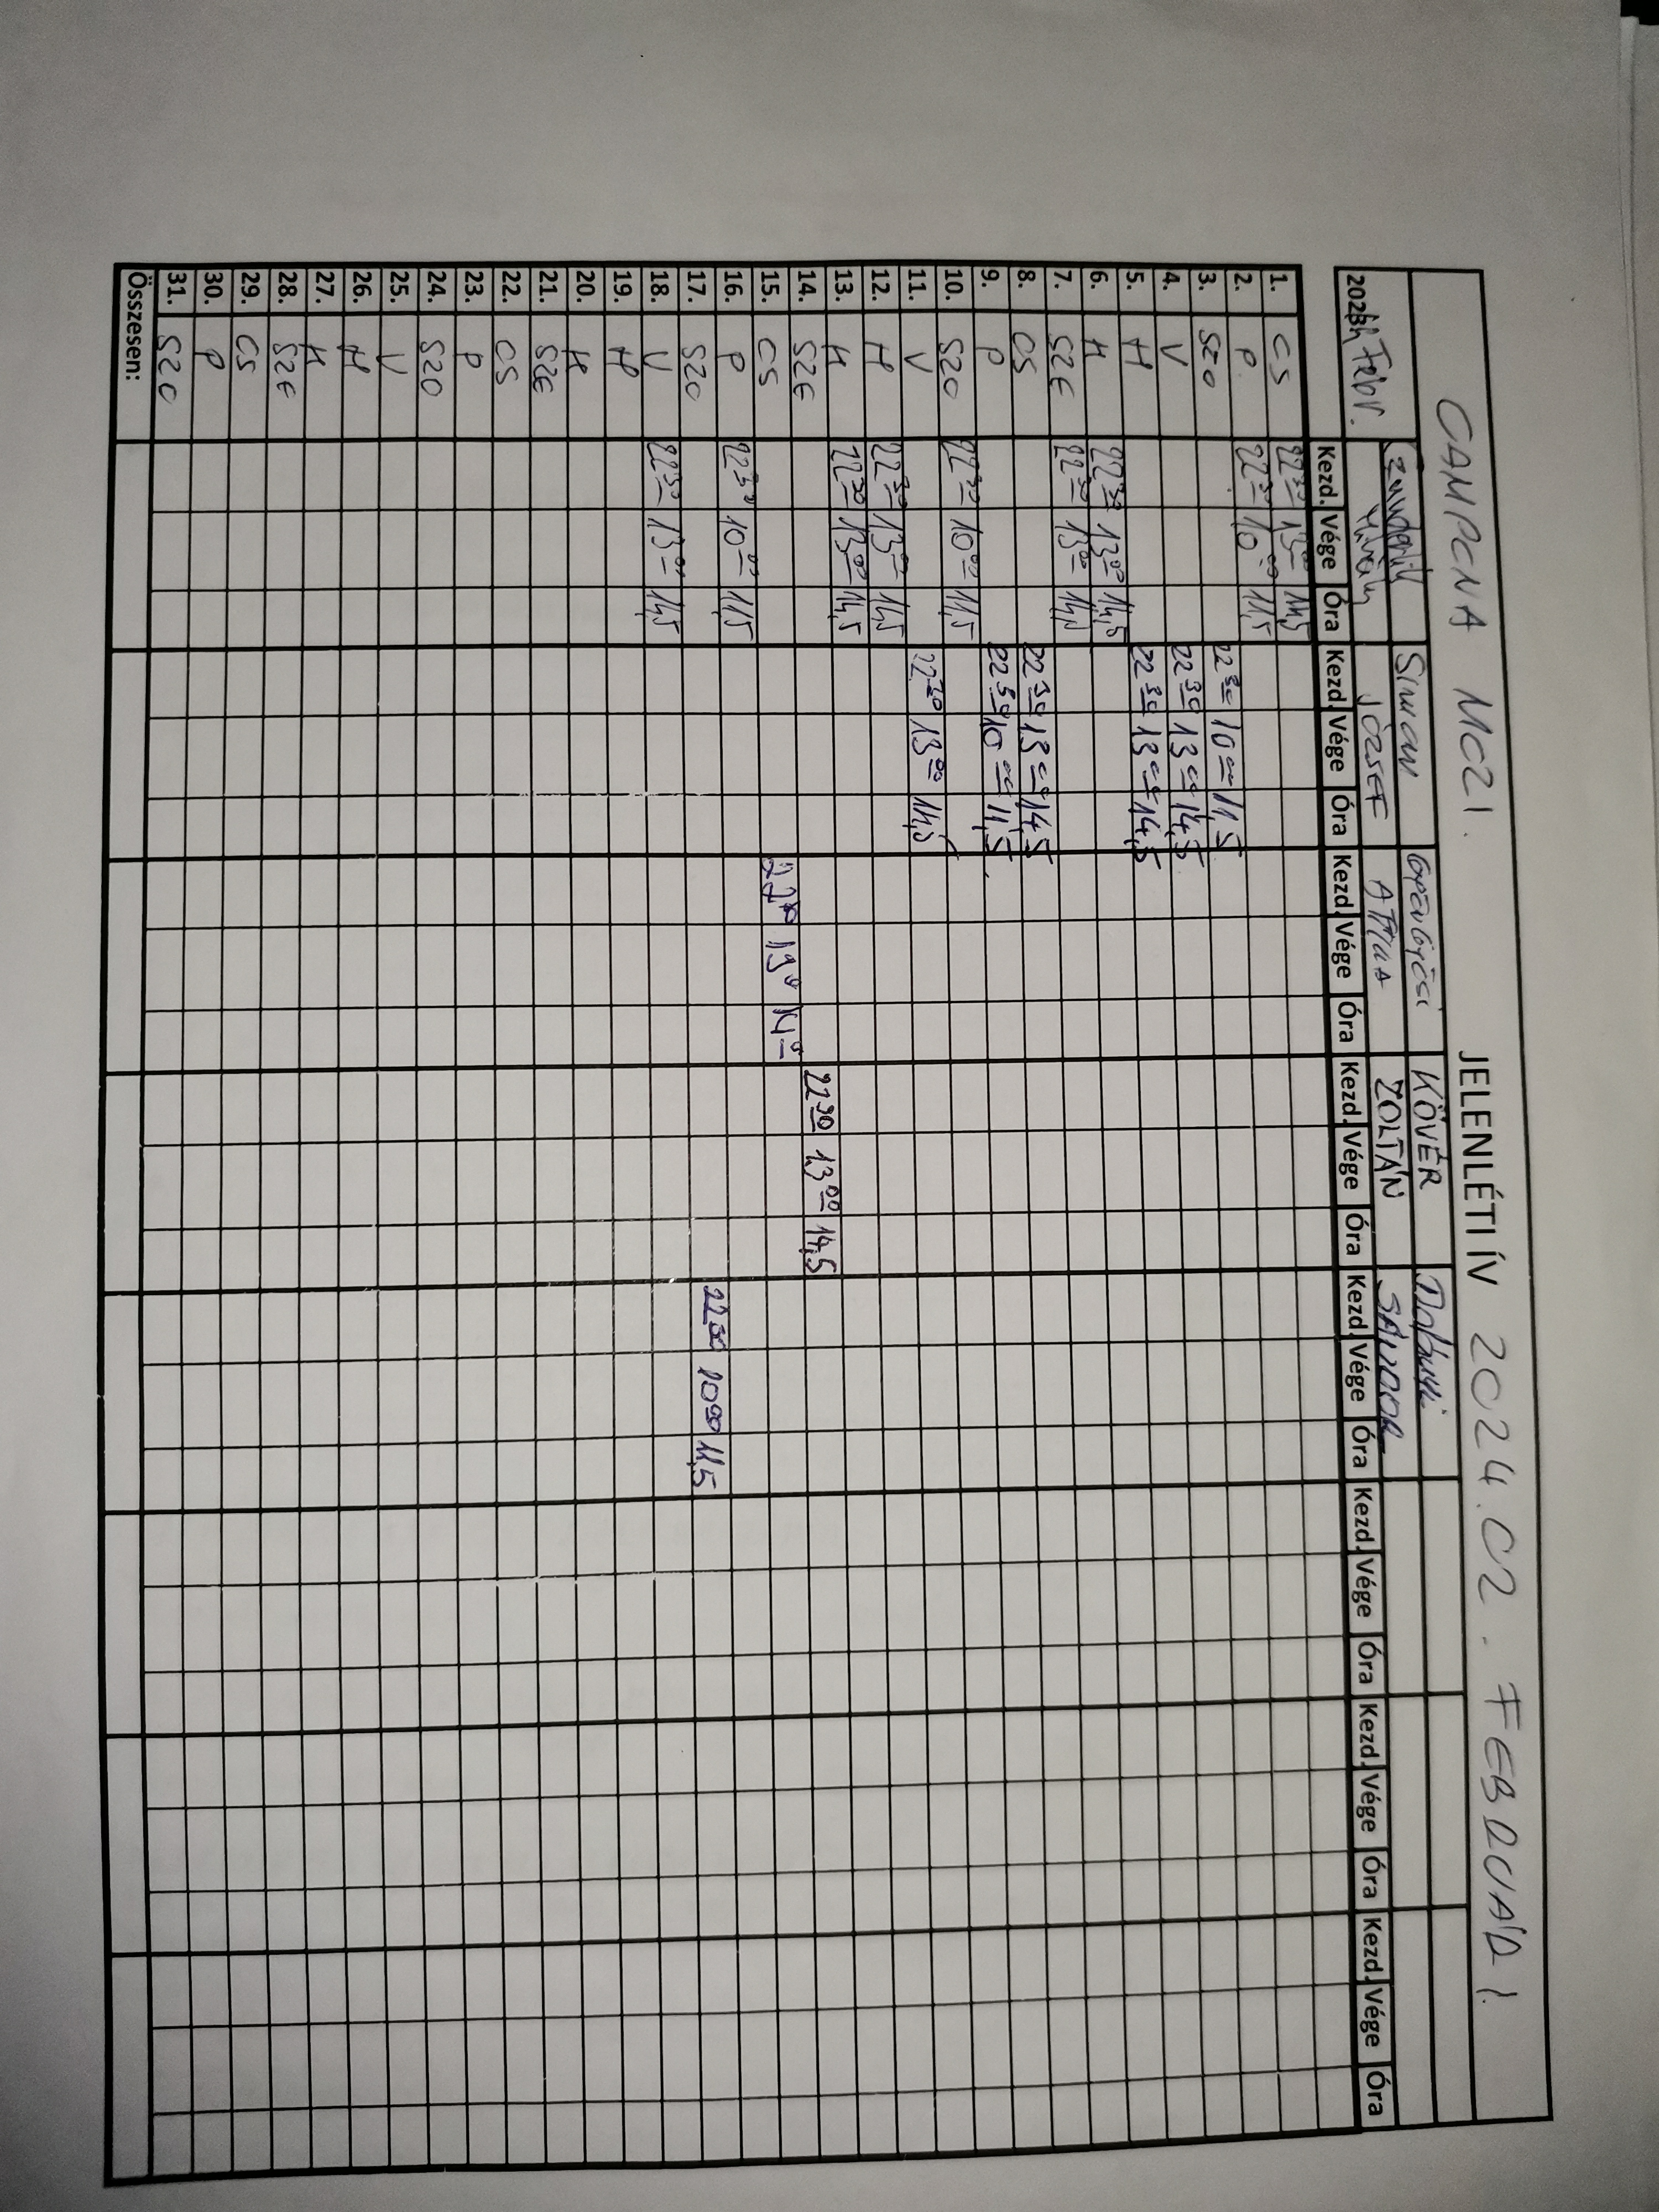 JELENLÉTI ÍV 2024.02. FEBRUÁR I.
CAMPONA MOZI.
Simon Gyöngyösi KÖVÉR
JÓZSEF ATTILA ZOLTÁN SÁNDOR
Febr. Kezd. Vége Óra Kezd. Vége Óra Kezd. Vége Óra Kezd. Vége Óra Kezd. Vége Óra Kezd. Vége Óra Kezd. Vége Óra Kezd. Vége Óra
1. CS 22 30 13 00 14,5
2. P 22 30 10 00 11,5
3. SZO 22 30 10 00 11,5
4. V 22 30 13 00 14,5
5. H 22 30 13 00 14,5
6. K 22 30 13 00 14,5
7. SZE 22 30 13 00 14,5
8. CS 22 30 13 00 14,5
9. P 22 30 10 00 11,5
10. SZO 22 30 10 00 11,5
11. V 22 30 13 00 14,5
12. H 22 30 13 00 14,5
13. K 22 30 13 00 14,5
14. SZE 22 30 13 00 14,5
15. CS
16. P 22 30 10 00 11,5
17. SZO 22 30 10 00 11,5
18. V 22 30 13 00 14,5
19. H
20. K
21. SZE
22. CS
23. P
24. SZO
25. V
26. H
27. K
28. SZE
29. CS
30. P
31. SZO
Összesen: